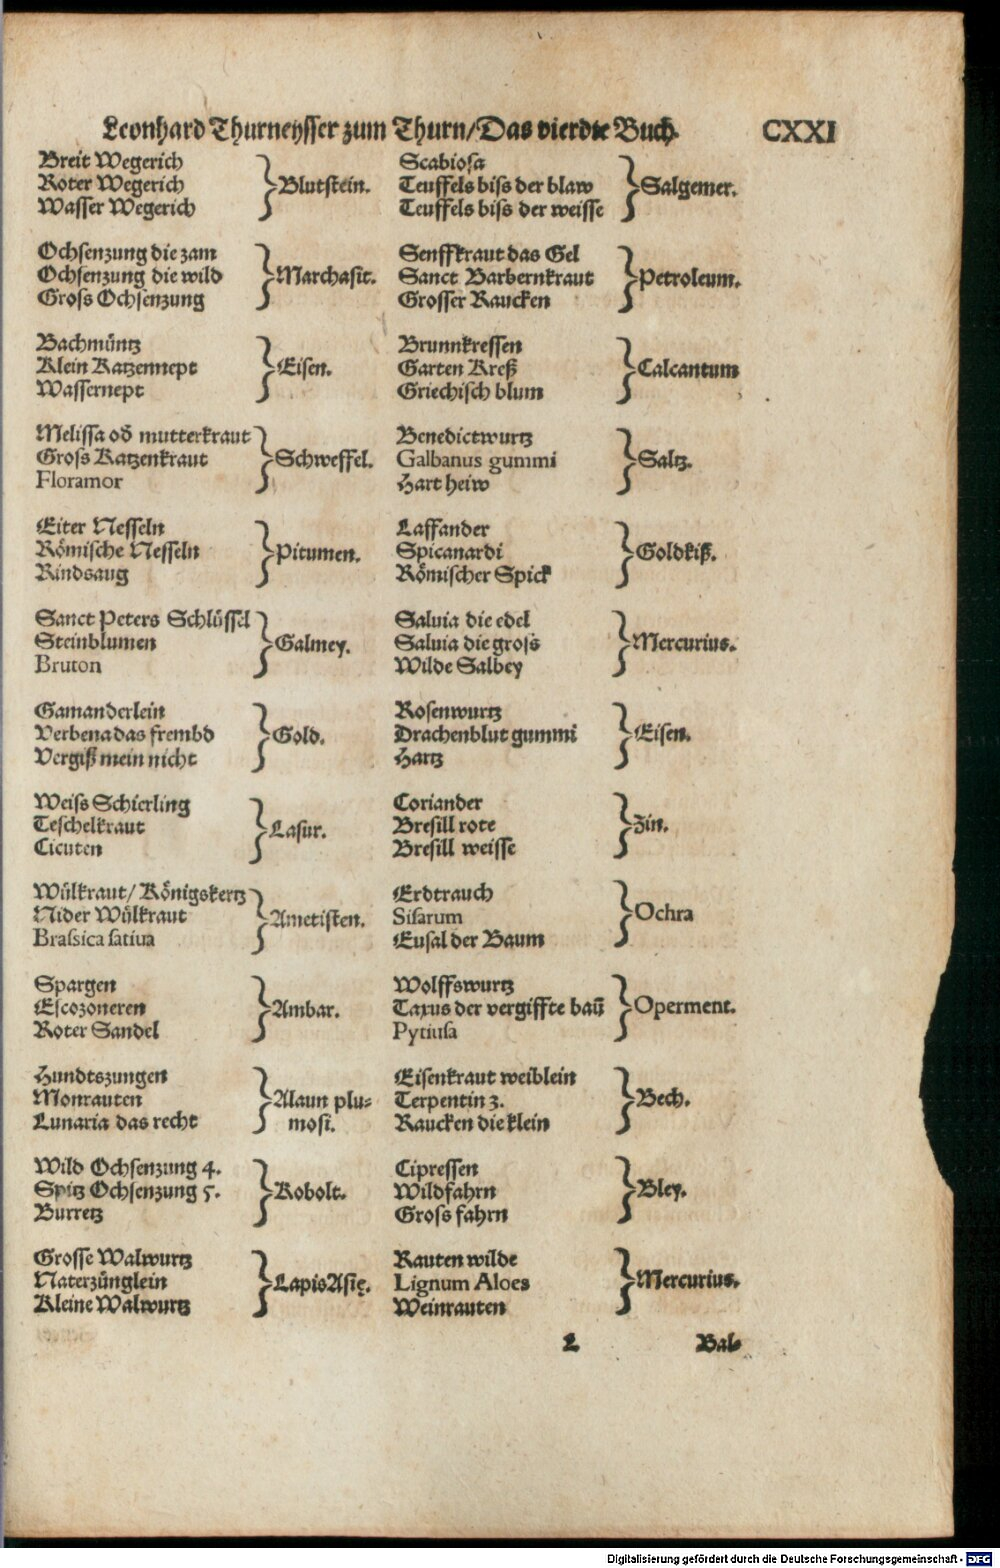 Leonhard Thurneysser zum Thurn/Das vierdte Buch. CXXI
Breit Wegerich
Roter Wegerich
Wasser Wegerich
Blutstein.
Ochsenzung die zam
Ochsenzung die wild
Gross Ochsenzung
Marchasit.
Bachmüntz
Klein Katzennept
Wassernept
Eisen.
Melissa od mutterkraut
Gross Katzenkraut
Floramor
Schweffel.
Eiter Nesseln
Römische Nesseln
Rindsaug
Pitumen.
Sanct Peters Schlüssel
Steinblumen
Bruton
Galmey.
Gamanderlein
Verbena das frembd
Vergiß mein nicht
Gold.
Weiss Schierling
Teschelkraut
Cicuten
Lasur.
Wülkraut/ Königskertz
Nider Wülkraut
Brassica satiua
Ametisten.
Spargen
Escozoneren
Roter Sandel
Ambar.
Hundtszungen
Monrauten
Lunaria das recht
Alaun plu=
mosi.
Wild Ochsenzung 4.
Spitz Ochsenzung 5.
Burretz
Kobolt.
Grosse Walwurtz
Naterzünglein
Kleine Walwurtz
Lapis Asię.
Scabiosa
Teuffels biss der blaw
Teuffels biss der weisse
Salgemer.
Senffkraut das Gel
Sanct Barbernkraut
Grosser Raucken
Petroleum.
Brunnkressen
Garten Kreß
Griechisch blum
Calcantum
Benedictwurtz
Galbanus gummi
Hart heiw
Saltz.
Laffander
Spicanardi
Römischer Spick
Goldkiß.
Saluia die edel
Saluia die gross
Wilde Salbey
Mercurius.
Rosenwurtz
Drachenblut gummi
Hartz
Eisen.
Coriander
Bresill rote
Bresill weisse
Zin.
Erdtrauch
Sisarum
Eusal der Baum
Ochra
Wolffswurtz
Taxus der vergiffte baū
Pytiusa
Operment.
Eisenkraut weiblein
Terpentin 3.
Raucken die klein
Bech.
Cipressen
Wildfahrn
Gross fahrn
Bley.
Rauten wilde
Lignum Aloes
Weinrauten
Mercurius.
L Bal=
Digitalisierung gefördert durch die Deutsche Forschungsgemeinschaft - DFG